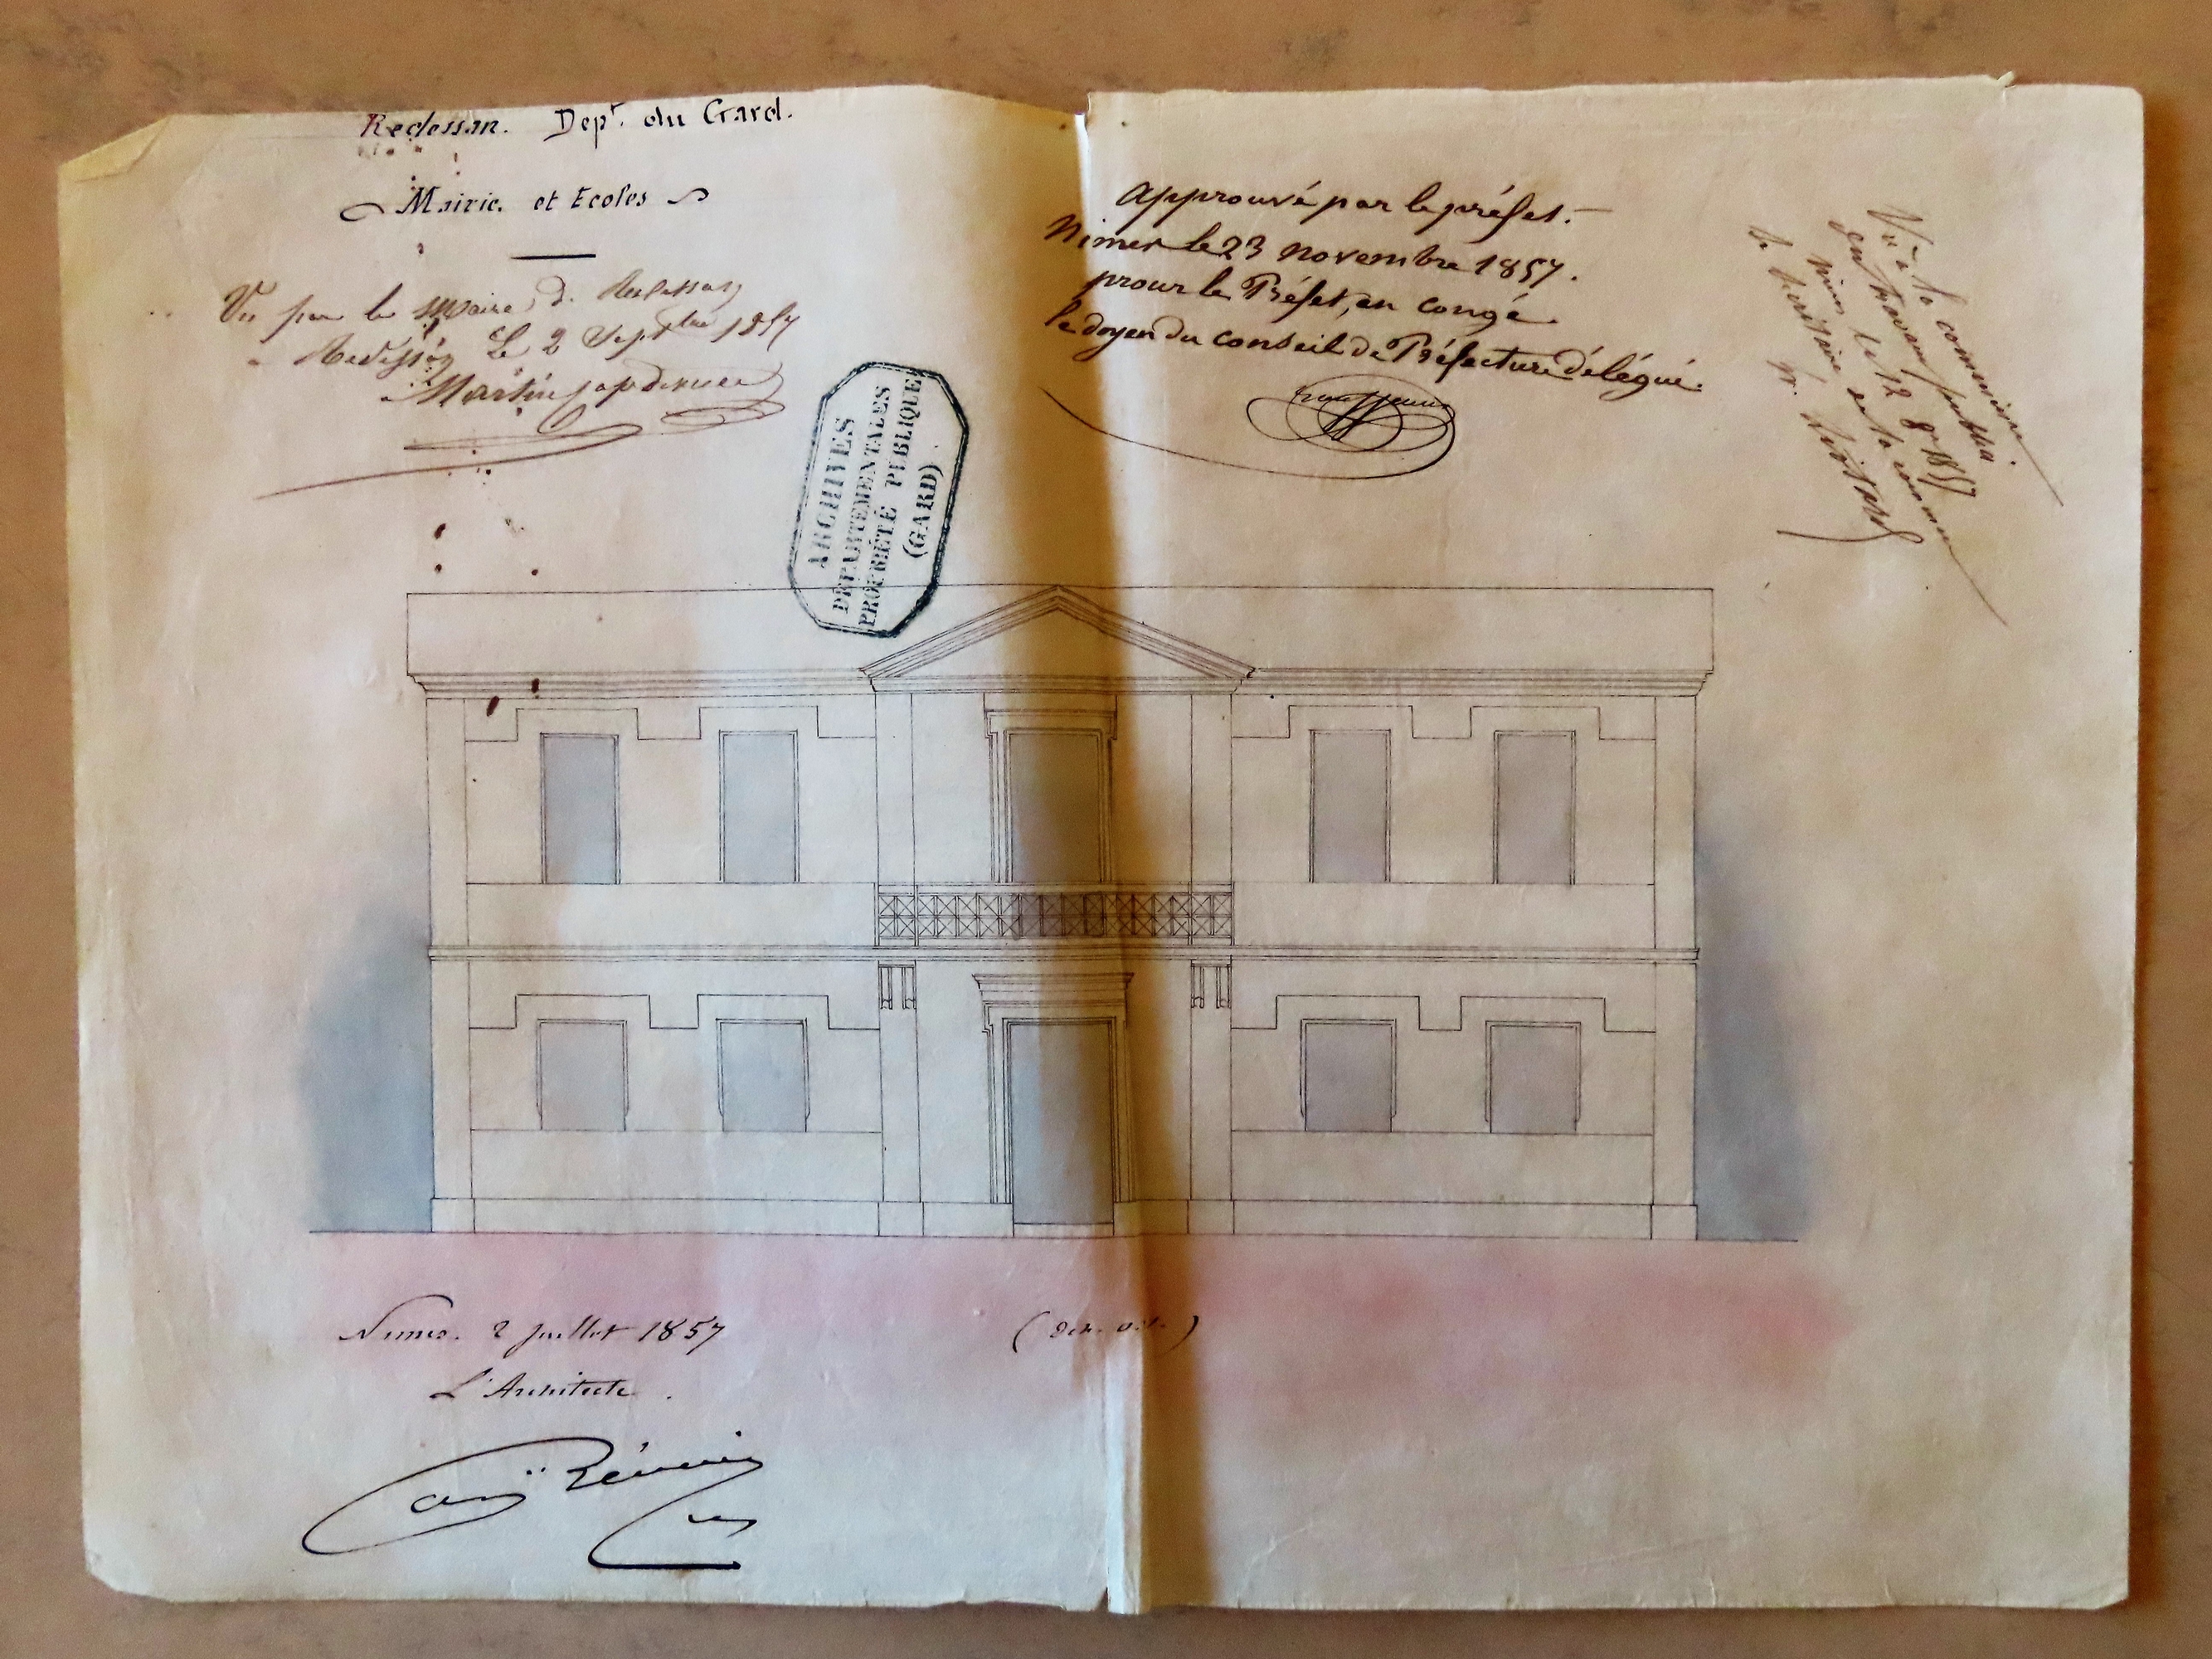 Redessan. Dept. du Gard.
Mairie et Ecoles
Vu par le Maire d. Redessan
Redessan Le 2 Septbre 1857
Martin
Approuvé par le préfet.
Nimes le 23 novembre 1857.
pour le Préfet, en congé.
le doyen du conseil de Préfecture délégué.
Vu à la commission
des travaux publics
Nimes le 12 8bre 1857
le secrétaire de la commission
ARCHIVES
DÉPARTEMENTALES
PROPRIÉTÉ PUBLIQUE
(GARD)
Nimes. 2 juillet 1857
L'Architecte.